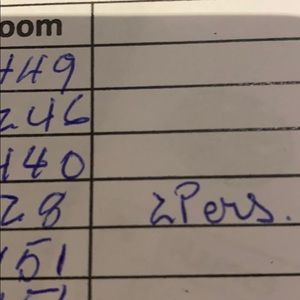 oom
449
246
140
28 2Pers.
151